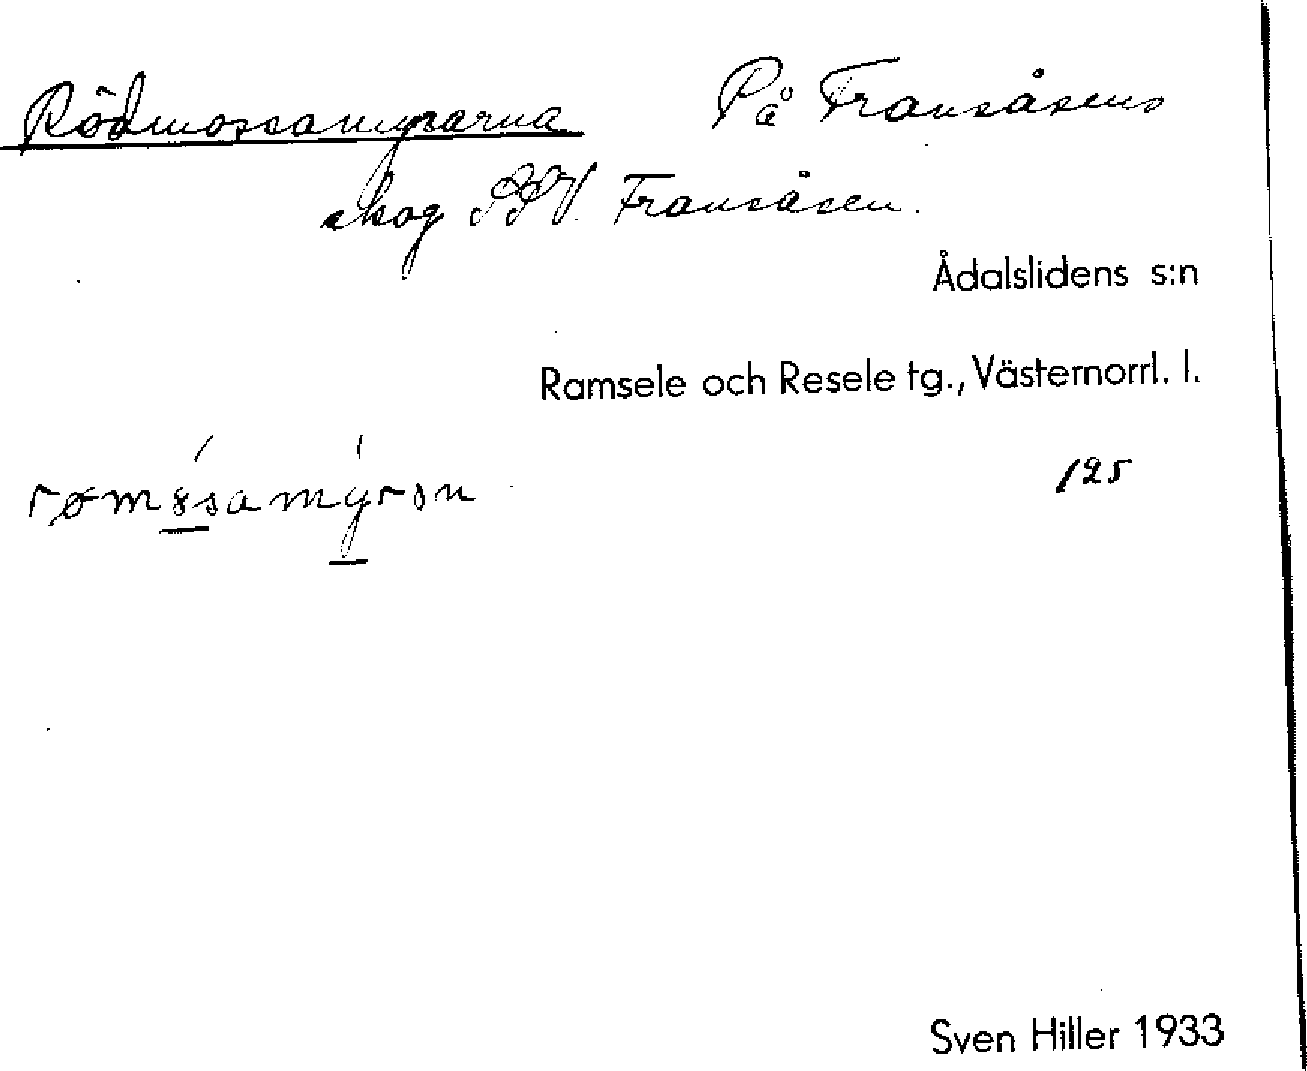 Rödmossamyrarna På Fransåsens
skog SV. Fransåsen.
Ådalslidens s:n
Ramsele och Resele tg., Västernorrl. l.
125
Sven Hiller 1933